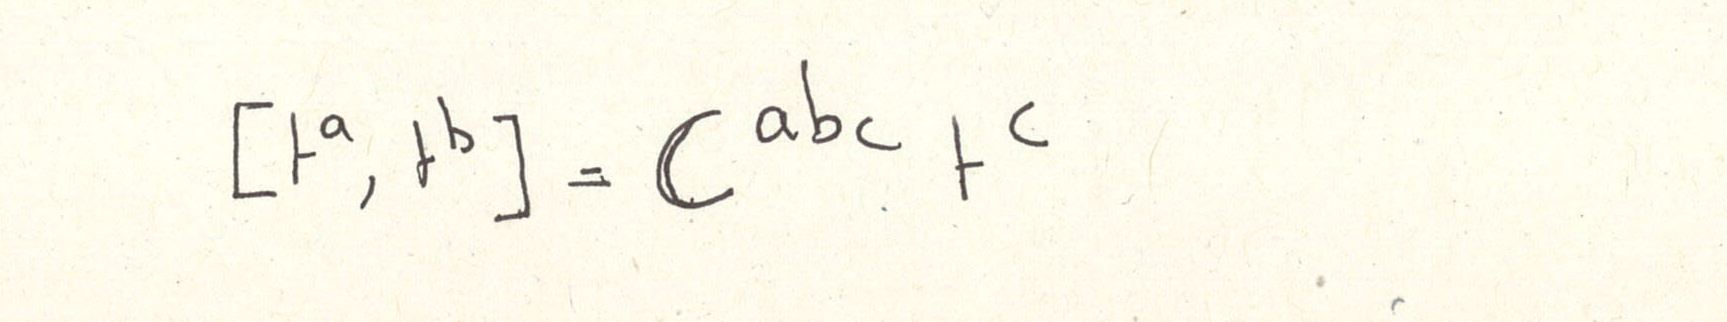 [t^a, t^b] = C^{abc} t^c